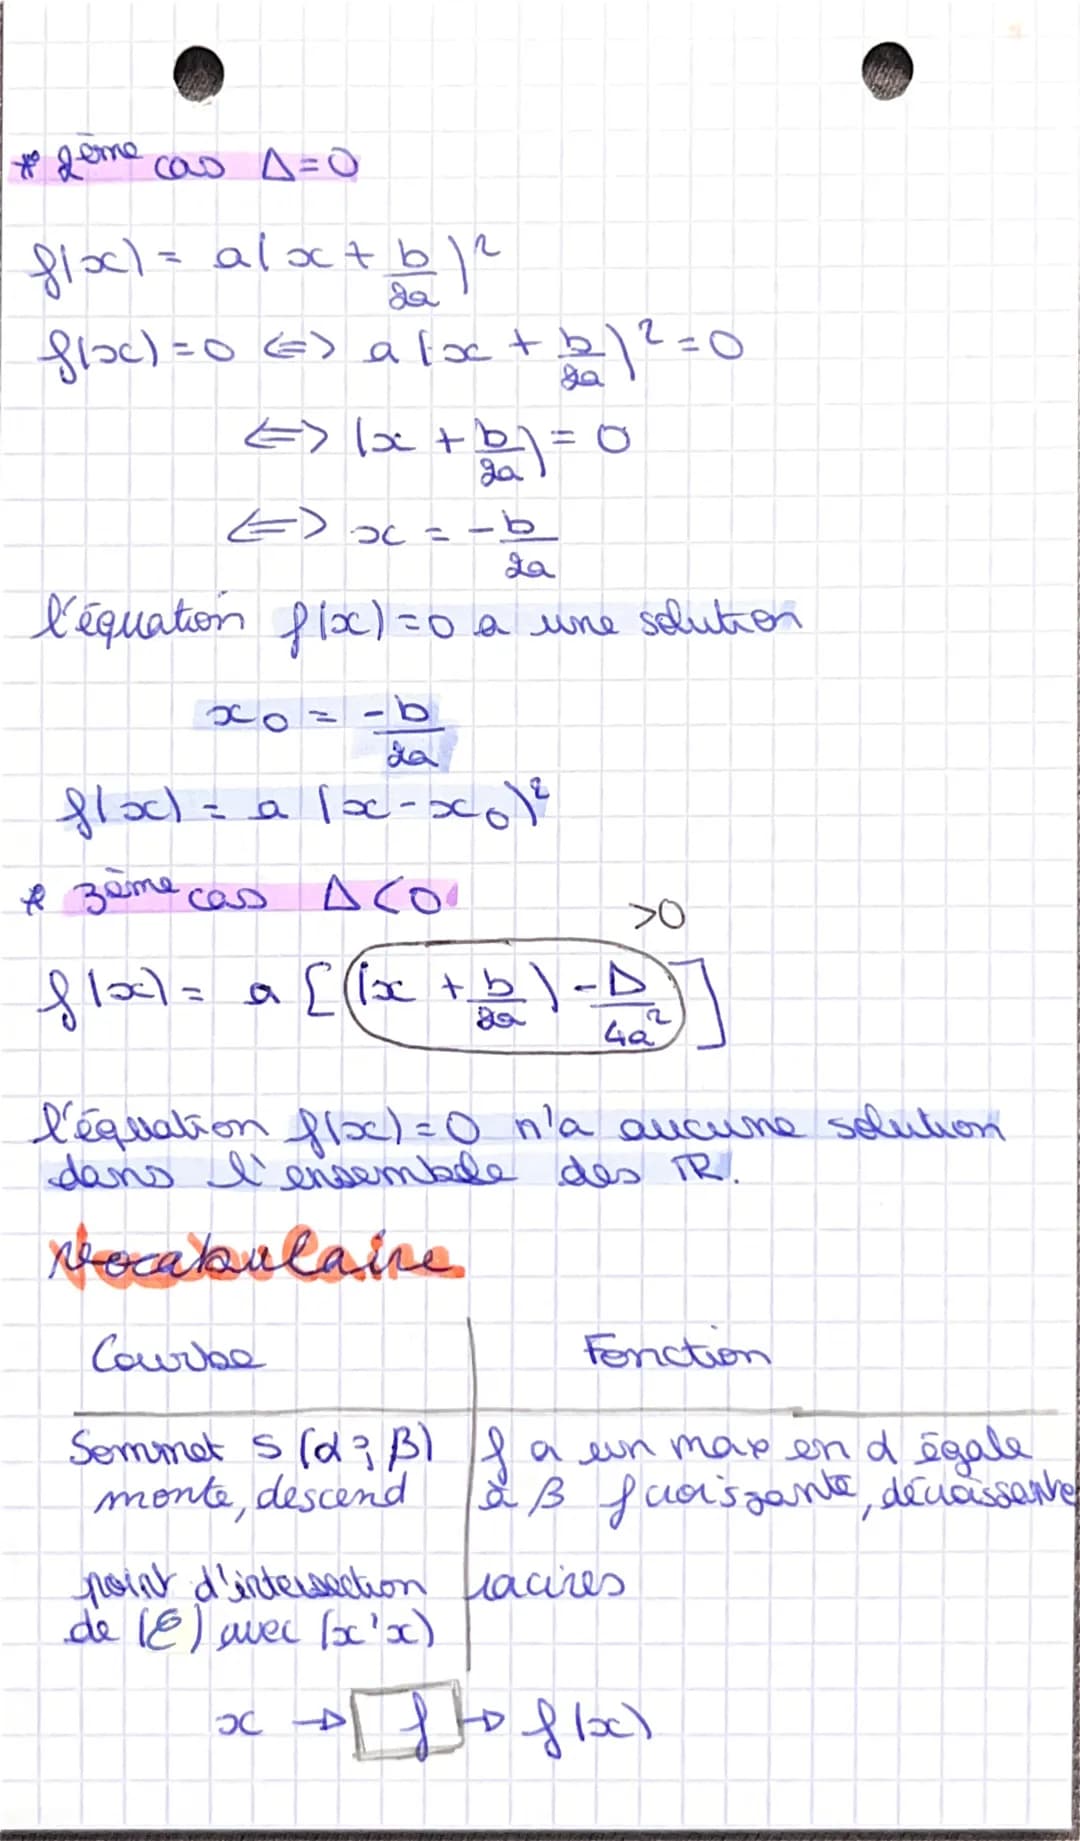 * 2ème cas Δ=0
f(x) = a(x + b/2a)²
f(x)=0 <=> a(x + b/2a)²=0
<=> (x + b/2a) = 0
<=> x = -b/2a
l'équation f(x)=0 a une solution
x₀ = -b/2a
f(x) = a (x-x₀)²
* 3ème cas Δ<0
>0
f(x) = a [(x + b/2a) - Δ/4a²]
l'équation f(x)=0 n'a aucune solution
dans l'ensemble des ℝ.
Vocabulaire
Courbe Fonction
Sommet S(α; β) f a un max en α égale
monte, descend à β f croissante, décroissante
point d'intersection racines
de (C) avec (x'x)
x → f → f(x)